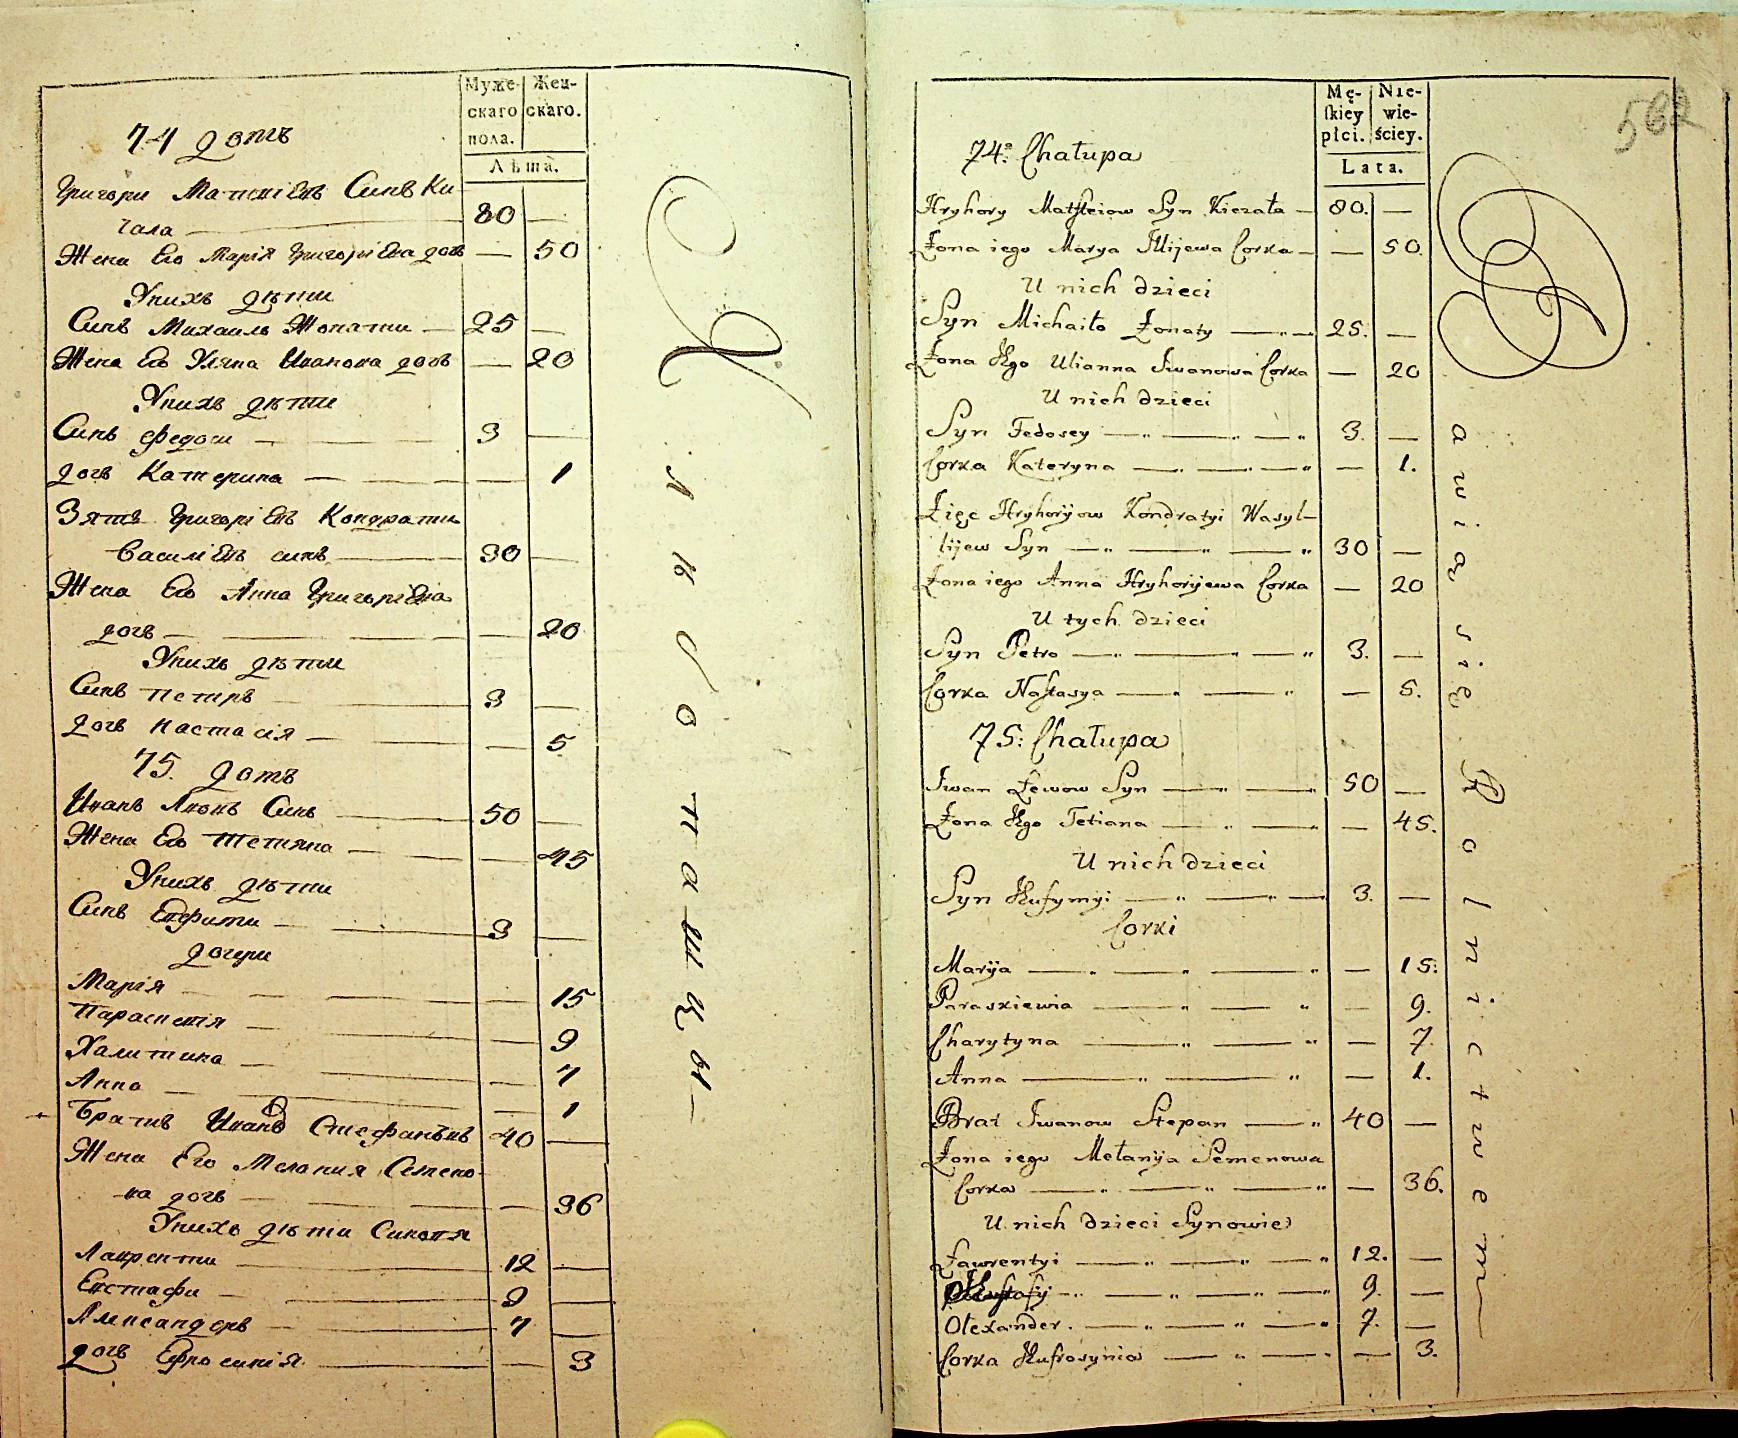 Муже-
скаго
пола.
Жен-
скаго.
Лѣта.
74 домъ
Григори Матвіевъ Синъ Ки-
чала — 80 —
Жена Его Марія Григоріева дочь — 50
У нихъ дѣти
Синъ Михаилъ Жонати — 25 —
Жена Его Уляна Иванова дочь — 20
У нихъ дѣти
Синъ Федоси — 3 —
дочь Катерина — — 1
Зять Григоріевъ Кондрати
Василіевъ синъ — 30 —
Жена Его Анна Григоріева
дочь — — 20
У нихъ дѣти
Синъ Петръ — 3 —
дочь Настасія — — 5
75. домъ
Иванъ Лвовъ Синъ — 50 —
Жена Его Тетяна — — 45
У нихъ дѣти
Синъ Евфими — 3 —
дочери
Марія — — 15
Параскевія — — 9
Халитина — — 7
Анна — — 1
Братъ Ивановъ Стефанъ 40 —
Жена Его Мелания Семено-
ва дочь — — 36
У нихъ дѣти Синовя
Лаврентии — 12 —
Евстафи — 9 —
Александеръ — 7 —
дочь Ефросинія — — 3
Хлѣбопашцы —
582
Mę-
skiey
płci.
Nie-
wie-
ściey.
Lata.
74a: Chałupa
Hryhory Matfieiow Syn Kiczała — 80. —
Żona iego Marya Illijewa Corka — — 50.
U nich dzieci
Syn Michaiło Żonaty — 25. —
Żona Jego Ulianna Iwanowa Corka — 20
U nich dzieci
Syn Fedosey — 3. —
Corka Kateryna — — 1.
Zięć Hryhoryow Kondratyi Wasyl-
lijew Syn — 30 —
Żona iego Anna Hryhoryjewa Corka — 20
U tych dzieci
Syn Petro — 3. —
Corka Nastasya — — 5.
75: Chałupa
Iwan Lewow Syn — 50 —
Żona Jego Tetiana — — 45.
U nich dzieci
Syn Jeufymyi — 3. —
Corki
Maryja — — 15:
Paraskiewia — — 9.
Charytyna — — 7.
Anna — — 1.
Brat Iwanow Stepan — 40 —
Żona iego Mełanija Semenowa
Corka — — 36.
U nich dzieci Synowie
Ławrentyi — 12. —
Jeustafy — 9. —
Ołexander. — 7. —
Corka Jeufrosynia — — 3.
Bawią się Rolnictwem —